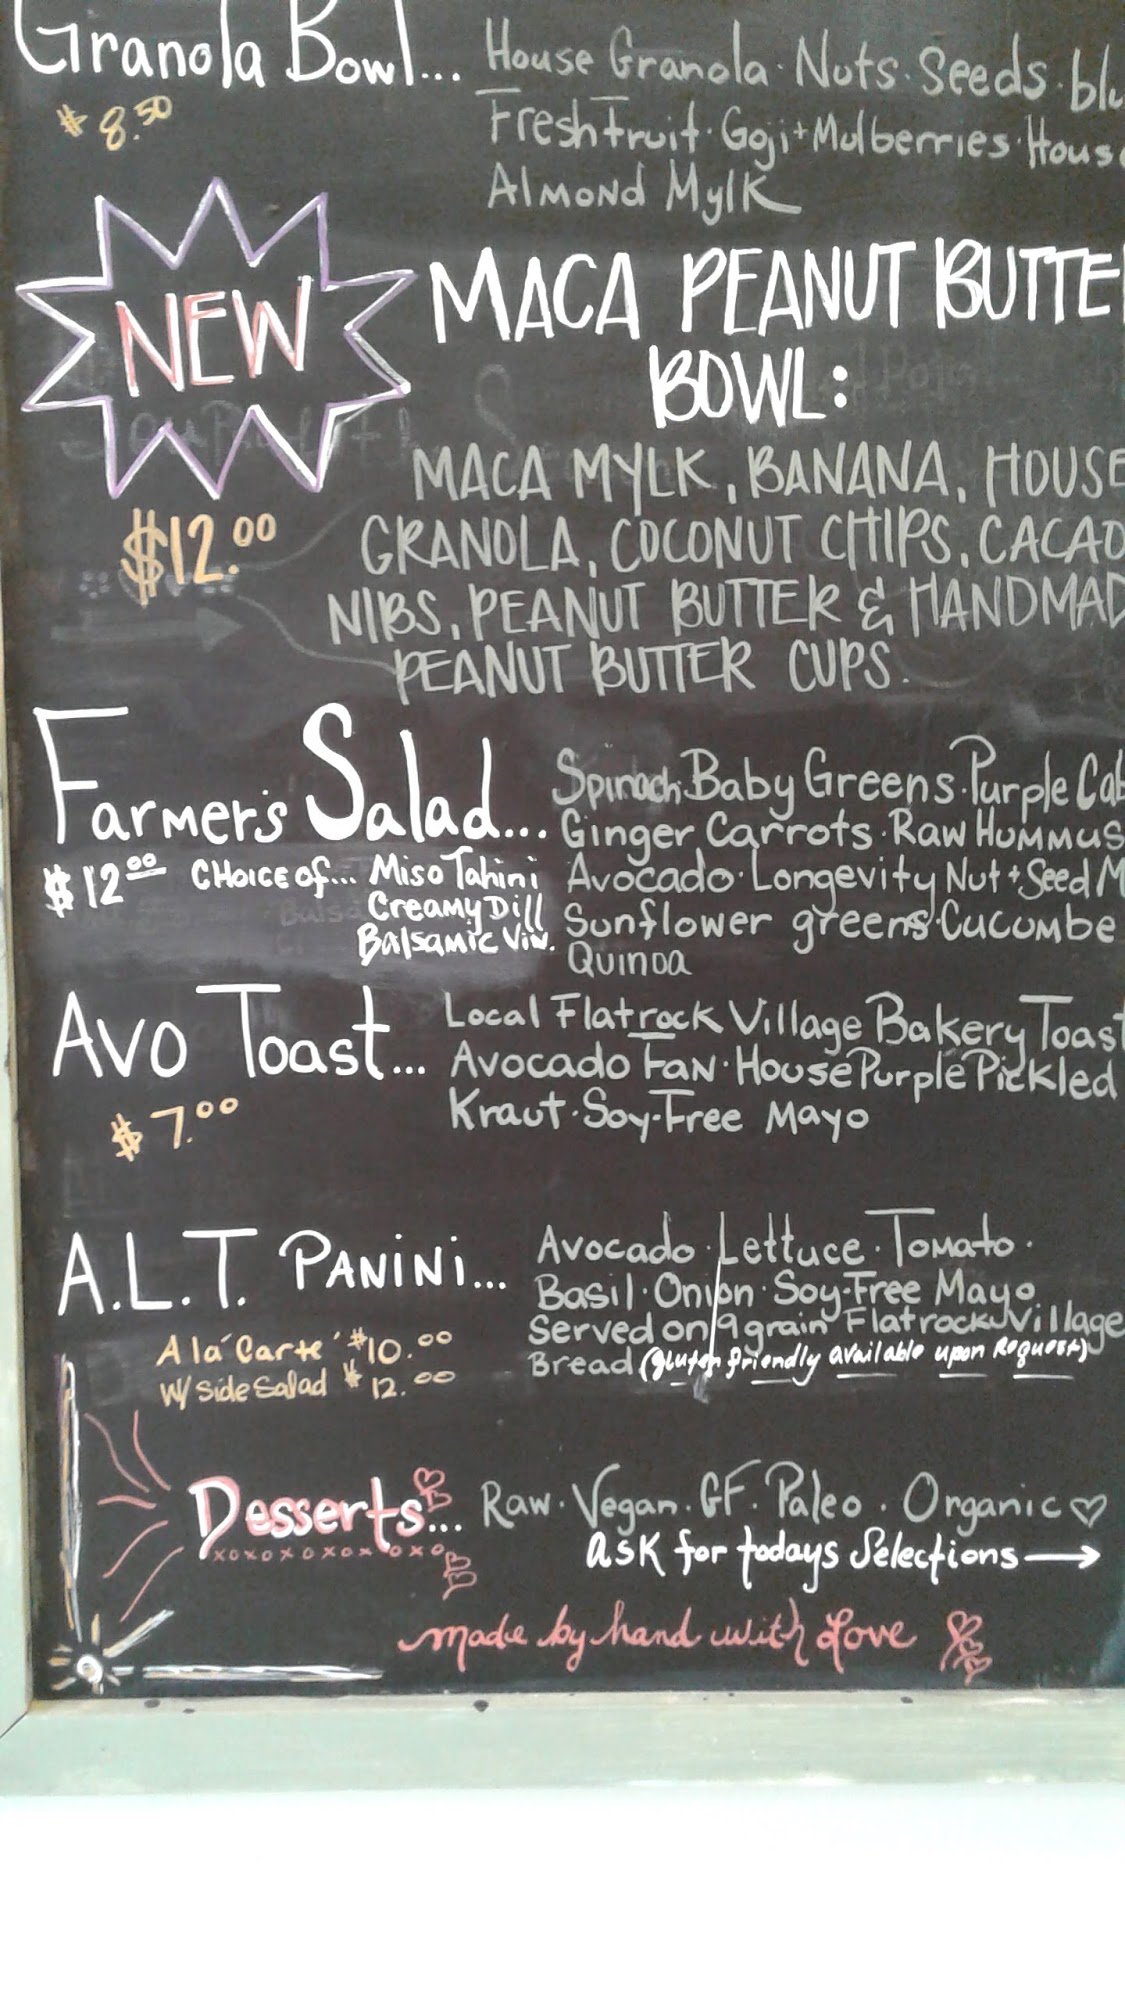 Granola Bowl... House Granola · Nuts · Seeds · blu
$8.50 Fresh Fruit · Goji + Mulberries · House
Almond Mylk
NEW MACA PEANUT BUTTE
BOWL:
MACA MYLK, BANANA, HOUSE
$12.00 GRANOLA, COCONUT CHIPS, CACAO
NIBS, PEANUT BUTTER & HANDMAD
PEANUT BUTTER CUPS.
Farmer's Salad... Spinach · Baby Greens · Purple Cab
Ginger Carrots · Raw Hummus
$12.00 CHoice of... Miso Tahini Avocado · Longevity Nut + Seed M
Creamy Dill Sunflower greens · Cucumbe
Balsamic Vin. Quinoa
Avo Toast... Local Flatrock Village Bakery Toast
Avocado Fan · House Purple Pickled
$7.00 Kraut · Soy-Free Mayo
A.L.T. Panini... Avocado · Lettuce · Tomato ·
Basil · Onion · Soy-Free Mayo
A la' Carte' $10.00 Served on 9 grain Flatrock Village
W/ Side Salad $12.00 Bread (gluten friendly available upon Request)
Desserts... Raw · Vegan · GF · Paleo · Organic ♡
xoxoxoxoxoxo ask for todays Selections →
made by hand with Love